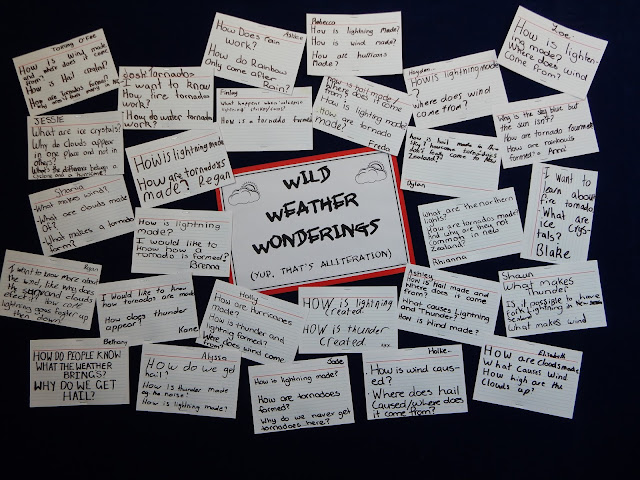 Tommy O'Fee
How is wind made
and where does it come
from?
How is Hail created?
How are tornados formed?
Ashlee
How Does Rain
work?
How do Rainbow
only come after
Rain?
Rebecca
How is lightning made?
How is wind made?
How are hurricans
made?
Zoe:
How is lighten-
ing made?
Where does wind
come from?
Josh: Tornados
I want to know
How fire tornados
work?
How do water tornados
work?
Finlay
What happens when
lightning
How is a tornado formed
How is hail made?
Where does it come
from?
How is lightning
made?
How are tornado
made?
Freda
Hayden
How is lightning made
?
where does wind
come from?
JESSIE
What are ice crystals?
Why do clouds appear
in one place and not in
others?
What's the difference between a
cyclone and a hurricane?
How is lightning made
How are tornados
made? Regan
WILD
WEATHER
WONDERINGS
(YUP, THAT'S ALLITERATION)
how is hail made in the
sky?
Zealand?
Dylan
Why is the sky blue but
the sun isn't?
How are tornado formed
How are rainbows
formed? Anna
Shania
What makes wind?
What are clouds made
of?
What makes a tornado
How is lightning
made?
I would like to
know how a
tornado is formed?
Brenna
What are the northern
lights?
How are tornados made?
and why are they not
common in new
Zealand?
Rhianna
I want to
learn about
fire tornado
What are
ice crys-
tals?
Blake
Ryan
I want to know more about
the wind, like why does
the clouds
effect it? How come
lightning goes higher up
then down?
I would like to know
how tornados are made
How does thunder
appear?
Kane
Bethany
Holly
How are Hurricanes
made?
How is thunder and
lightning formed?
Where does wind come
from?
HOW is lightning
created
HOW is thunder
created
Ashley
How is hail made and
where does it come
from?
What causes Lightning
and Thunder?
How is Wind made?
Shaun
What makes
Thunder?
Is it possible to have
fork lightning in New
Zealand
What makes wind
HOW DO PEOPLE KNOW
WHAT THE WEATHER
BRINGS?
WHY DO WE GET
HAIL?
Alyssa
How do we get
hail?
How is thunder made
eg the noise?
How is lightning made?
Jade
How is lightning made?
How are tornadoes
formed?
Why do we never get
tornadoes here?
Hollie
How is wind caus-
ed?
Where does hail
Caused/where does
it come from?
Elizabeth
How are clouds made
What causes wind
How high are the
clouds up?